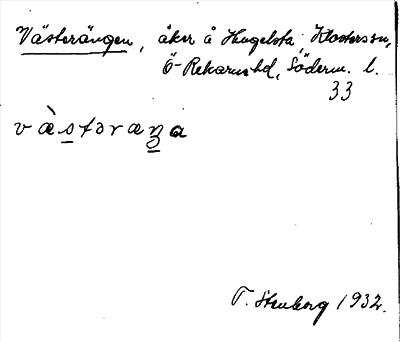 Västerängen, åker å Hugelsta, Klosters sn,
Ö-Rekarne hd, Söderm. l.
33
væ̀stəræŋa
T. Stenberg 1932.